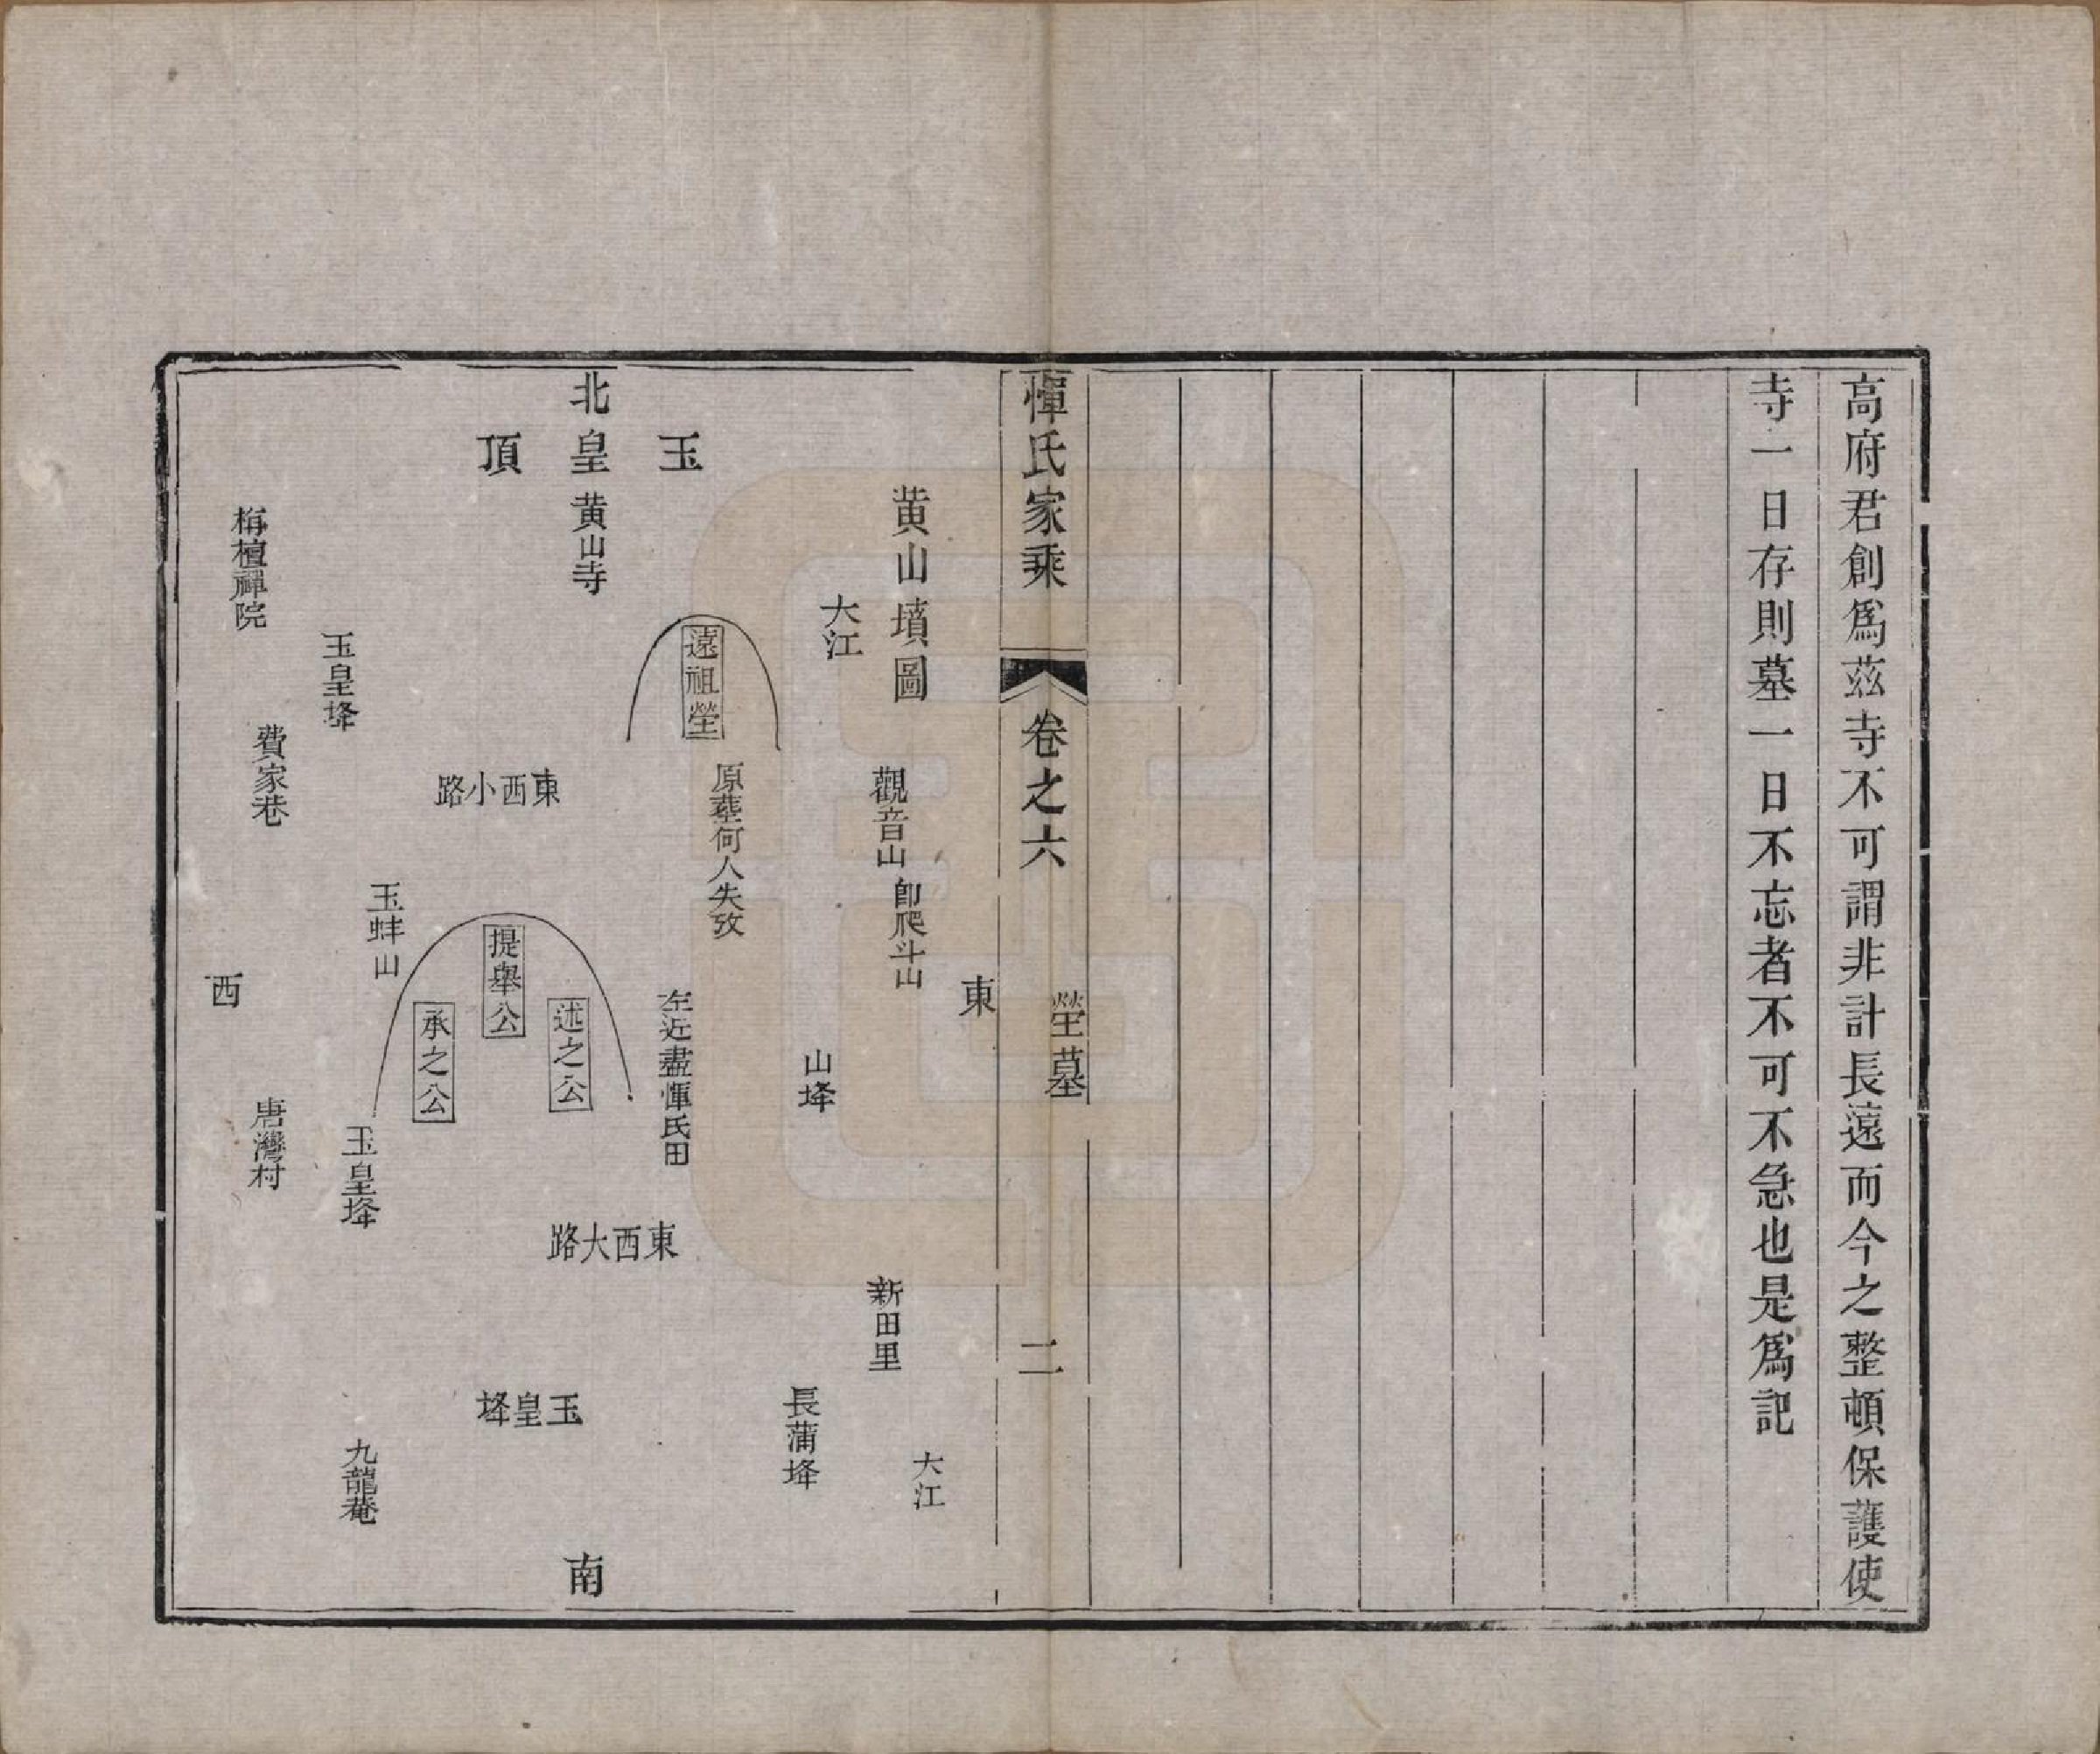 高府君創爲茲寺不可謂非計長遠而今之整頓保護使
寺一日存則墓一日不忘者不可不急也是爲記
惲氏家乘
卷之六
塋墓
二
黄山墳圖
東
大江
觀音山
卽爬斗山
山埄
新田里
長蒲埄
大江
玉皇頂
北
黄山寺
遠祖塋
原葬何人失攷
東西小路
提舉公
述之公
承之公
左近盡惲氏田
東西大路
玉皇埄
南
玉皇埄
玉蚌山
玉皇埄
九龍菴
栴檀禪院
費家巷
西
唐灣村